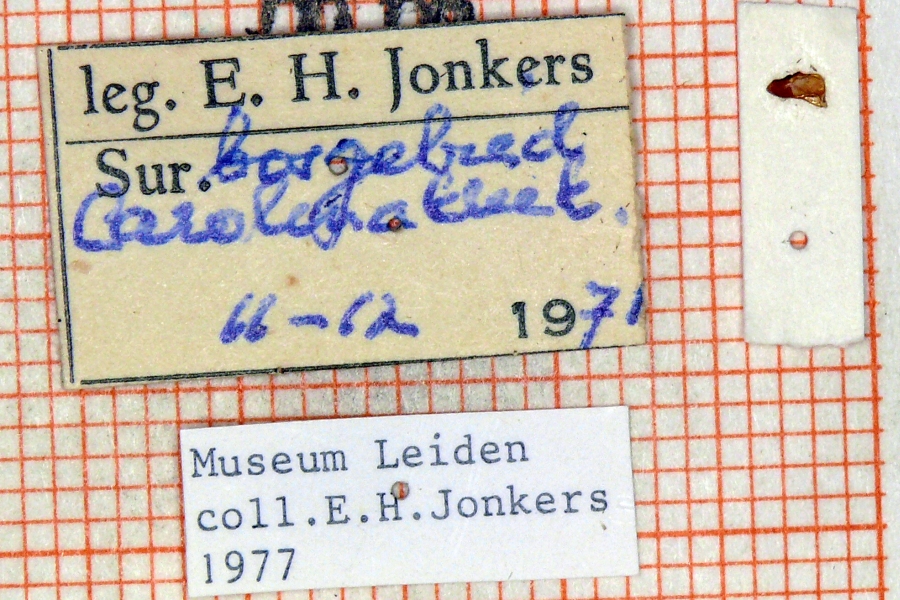 leg. E. H. Jonkers
Sur. boxgebied
Carolinakreek.
1971
Museum Leiden
coll.E.H.Jonkers
1977